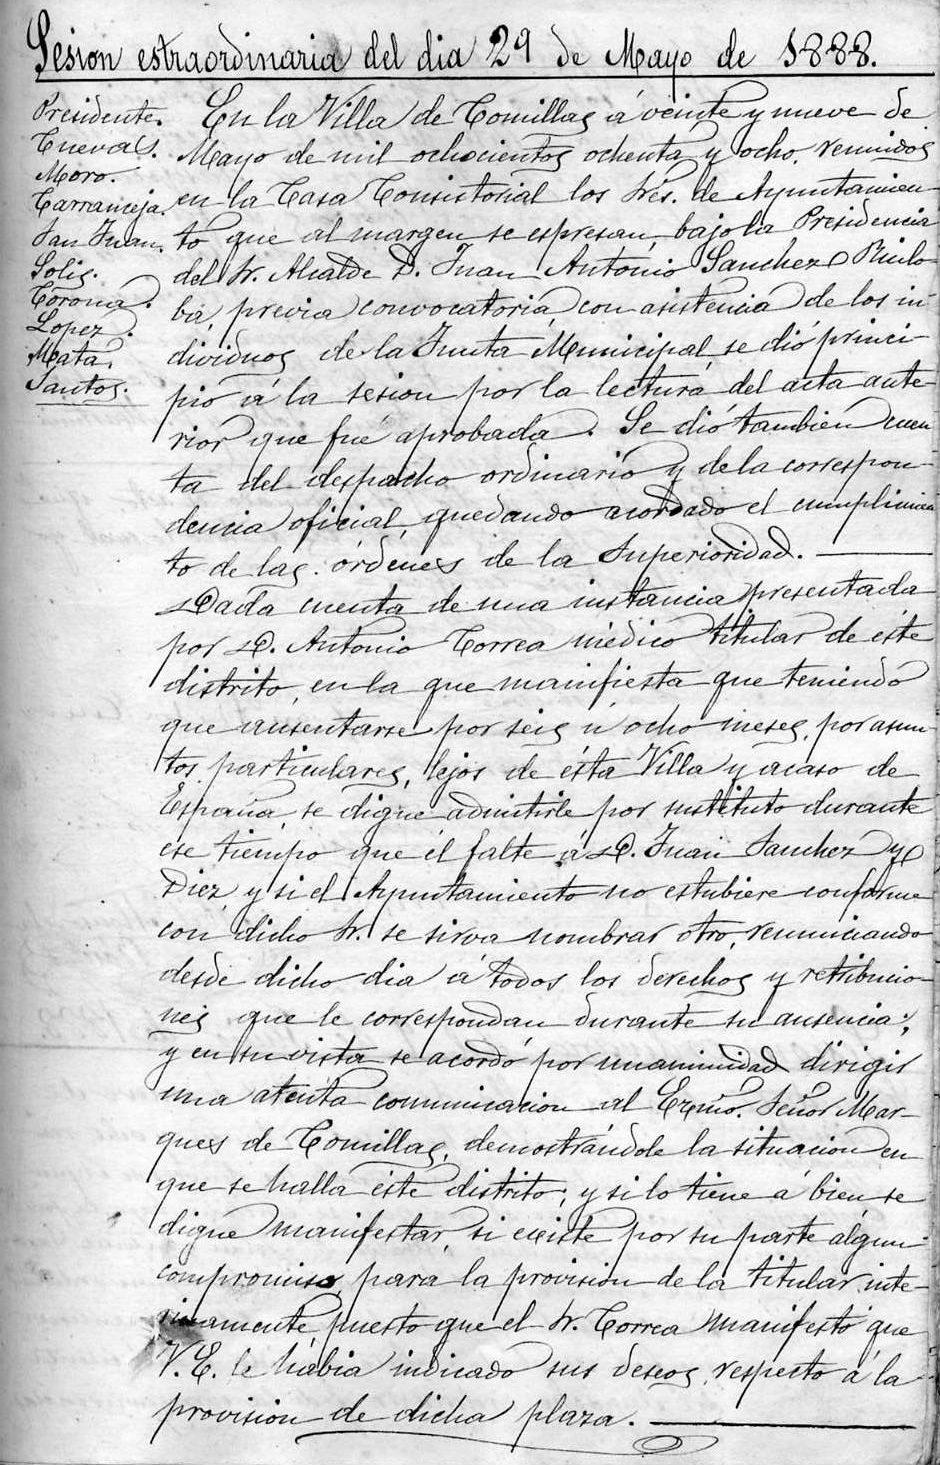 Sesion estraordinaria del dia 29 de Mayo de 1888.
Presidente.
Cuevas.
Moro.
Carranceja.
San Juan.
Solis.
Corona.
Lopez.
Mata.
Santos.
En la Villa de Comillas á veinte y nueve de
Mayo de mil ochocientos ochenta y ocho, reunidos
en la Casa Consistorial los Sres. de Ayuntamien-
to que al margen se espresan, bajo la Presidencia
del Sr. Alcalde D. Juan Antonio Sanchez Ruilo-
ba, previa convocatoria, con asistencia de los in-
dividuos de la Junta Municipal, se dió princi-
pio á la sesion por la lectura del acta ante-
rior que fué aprobada. Se dió tambien cuen
ta del despacho ordinario y de la correspon-
dencia oficial, quedando acordado el cumplimien
to de las órdenes de la Superioridad.
Dada cuenta de una instancia presentada
por D. Antonio Correa médico titular de este
distrito, en la que manifiesta que teniendo
que ausentarse por seis ú ocho meses, por asun-
tos particulares, lejos de ésta Villa y acaso de
España, se digne admitirle por sustituto durante
ese tiempo que él falte á D. Juan Sanchez y
Diez, y si el Ayuntamiento no estubiere conforme
con dicho Sr. se sirva nombrar otro, renunciando
desde dicho dia á todos los derechos y retribucio-
nes que le correspondan durante su ausencia;
y en su vista se acordó por unanimidad dirigir
una atenta comunicacion al Excmo. Señor Mar-
ques de Comillas, demostrándole la situacion en
que se halla éste distrito; y si lo tiene á bien se
digne manifestar, si existe por su parte algun
compromiso, para la provision de la titular inte-
rinamente, puesto que el Sr. Correa manifestó que
V. E. le habia indicado sus deseos, respecto á la
provision de dicha plaza.